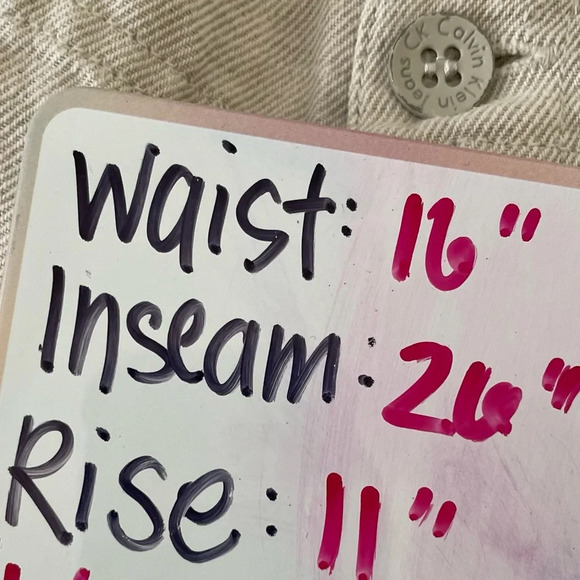 CK Calvin Klein Jeans
Waist: 16"
Inseam: 26"
Rise: 11"